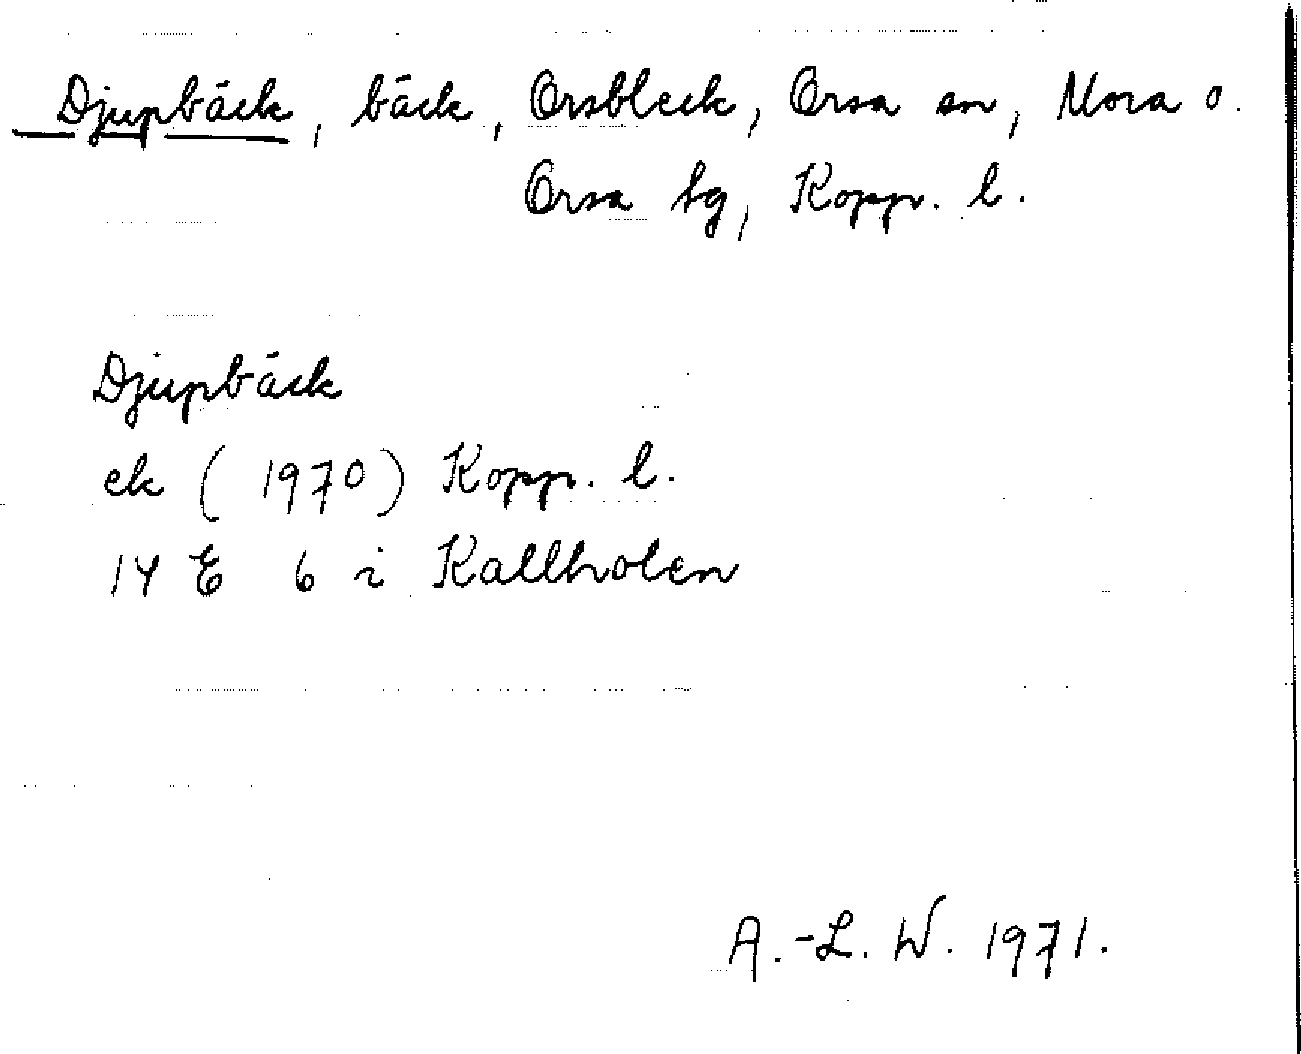 Djupbäck, bäck, Orsbleck, Orsa sn, Mora o.
Orsa tg, Kopp. l.
Djupbäck
ek (1970) Kopp. l.
14 E 6 i Kallholen
A.-L. W. 1971.